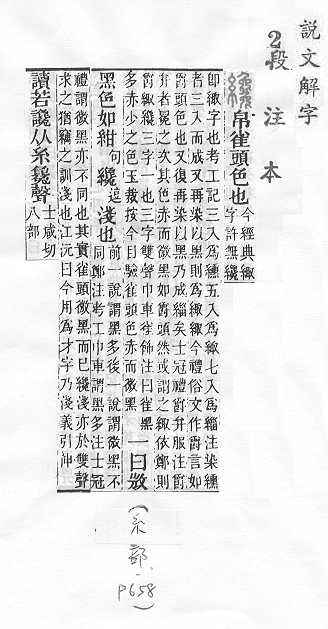 說文解字
2段注本
纔 帛雀頭色也 今經典緅
字許無纔
卽緅字也考工記三入爲纁五入爲緅七入爲緇注染纁
者三入而成又再染以黑則爲緅緅今禮俗文作爵言如
爵頭色也又復再染以黑乃成緇矣士冠禮爵弁服注爵
弁者冕之次其色赤而微黑如爵頭然或謂之緅依鄭則
爵緅纔三字一也三字雙聲巾車雀飾注曰雀黑
多赤少之色玉裁按今目驗雀頭色赤而微黑 一曰𢼸
黑色如紺 句 纔 逗 淺也 前一說謂黑多後一說謂微黑不
同鄭注考工巾車謂黑多注士冠
禮謂微黑亦不同也其實雀頭微黑而已纔淺亦於雙聲
求之猶竊之訓淺也江沅曰今用爲才字乃淺義引伸
讀若讒从糸毚聲 士咸切
八部
(糸部.P658)